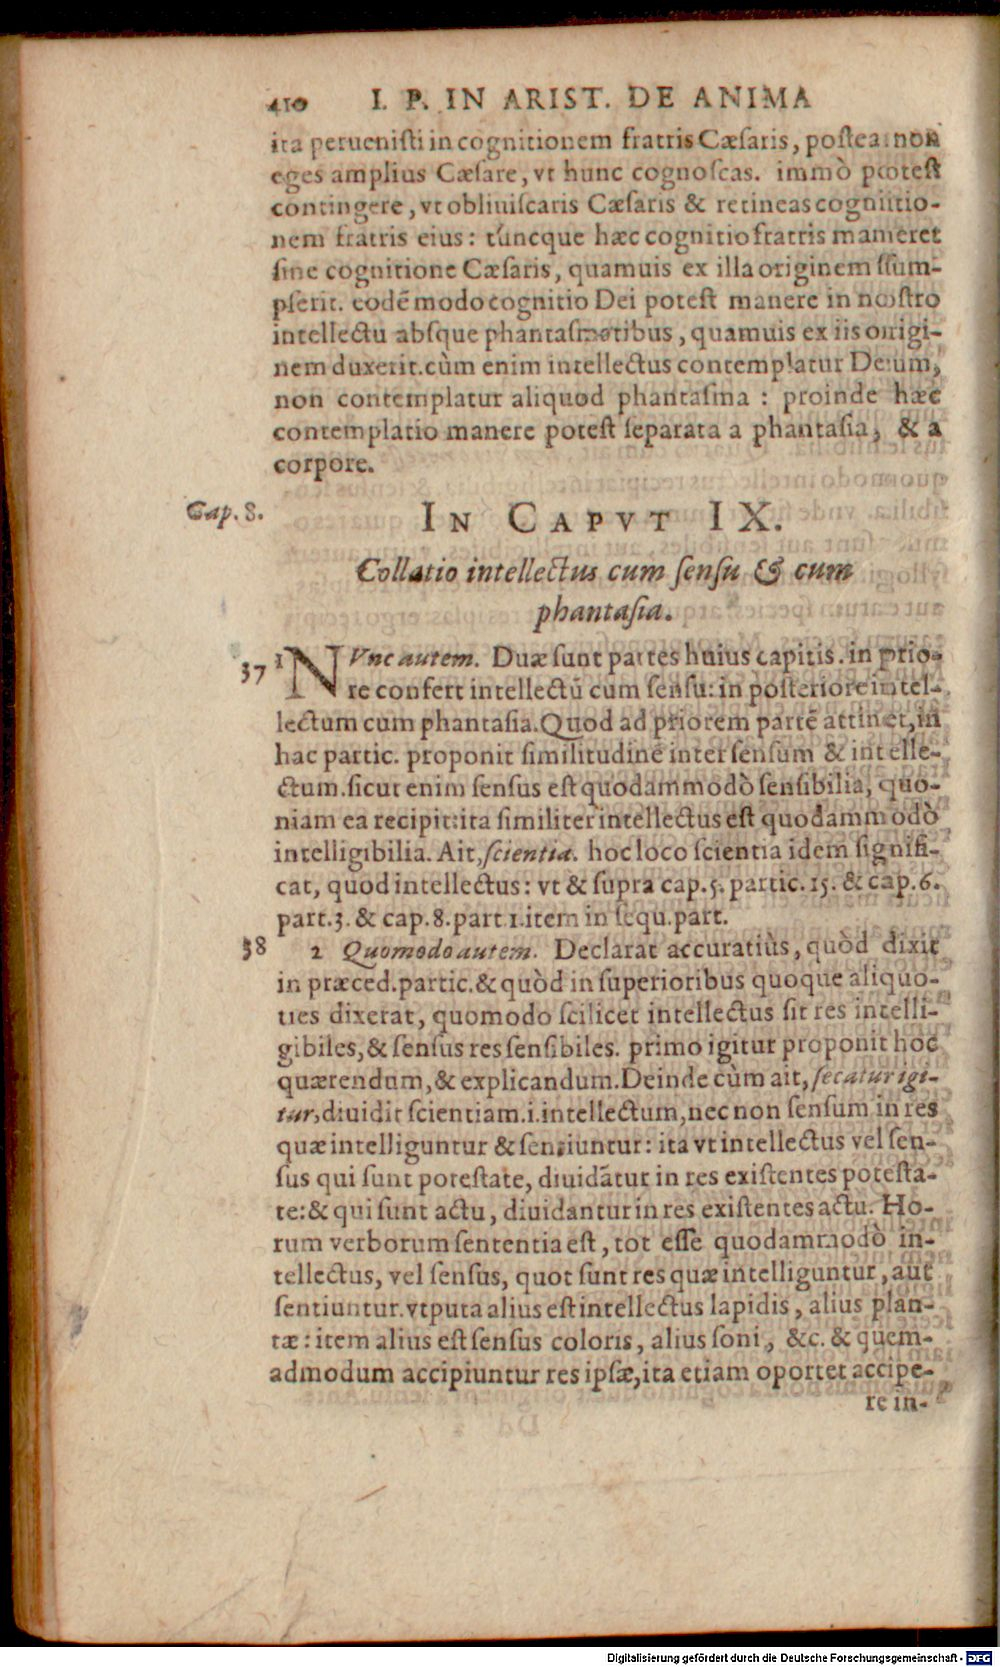 410 I. P. IN ARIST. DE ANIMA
ita peruenisti in cognitionem fratris Cæsaris, postea non
eges amplius Cæsare, vt hunc cognoscas. immò potest
contingere, vt obliuiscaris Cæsaris & retineas cognitio-
nem fratris eius: tuncque hæc cognitio fratris maneret
sine cognitione Cæsaris, quamuis ex illa originem sum-
pserit. eodē modo cognitio Dei potest manere in nostro
intellectu absque phantasmatibus, quamuis ex iis origi-
nem duxerit. cùm enim intellectus contemplatur Deum,
non contemplatur aliquod phantasma: proinde hæc
contemplatio manere potest separata a phantasia, & a
corpore.
Cap. 8.
IN CAPVT IX.
Collatio intellectus cum sensu & cum
phantasia.
37 1 NVnc autem. Duæ sunt partes huius capitis. in prio-
re confert intellectū cum sensu: in posteriore intel-
lectum cum phantasia. Quod ad priorem partē attinet, in
hac partic. proponit similitudinē inter sensum & intelle-
ctum. sicut enim sensus est quodammodò sensibilia, quo-
niam ea recipit: ita similiter intellectus est quodammodò
intelligibilia. Ait, scientia. hoc loco scientia idem signifi-
cat, quod intellectus: vt & supra cap. 5. partic. 15. & cap. 6.
part. 3. & cap. 8. part 1. item in sequ. part.
38 2 Quomodo autem. Declarat accuratiùs, quòd dixit
in præced. partic. & quòd in superioribus quoque aliquo-
ties dixerat, quomodo scilicet intellectus sit res intelli-
gibiles, & sensus res sensibiles. primo igitur proponit hoc
quærendum, & explicandum. Deinde cùm ait, secatur igi-
tur, diuidit scientiam .i. intellectum, nec non sensum in res
quæ intelliguntur & sentiuntur: ita vt intellectus vel sen-
sus qui sunt potestate, diuidātur in res existentes potesta-
te: & qui sunt actu, diuidantur in res existentes actu. Ho-
rum verborum sententia est, tot esse quodammodò in-
tellectus, vel sensus, quot sunt res quæ intelliguntur, aut
sentiuntur. vtputa alius est intellectus lapidis, alius plan-
tæ: item alius est sensus coloris, alius soni, &c. & quem-
admodum accipiuntur res ipsæ, ita etiam oportet accipe-
re in-
Digitalisierung gefördert durch die Deutsche Forschungsgemeinschaft - DFG